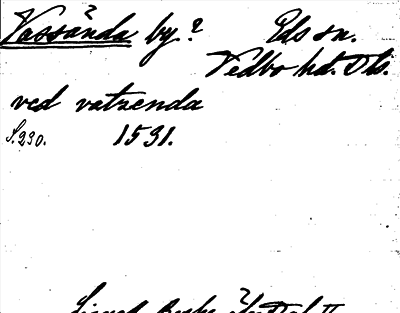 Vassända by? Eds sn.
Vedbo hd. Dls.
ved vatzenda
S.230. 1531.